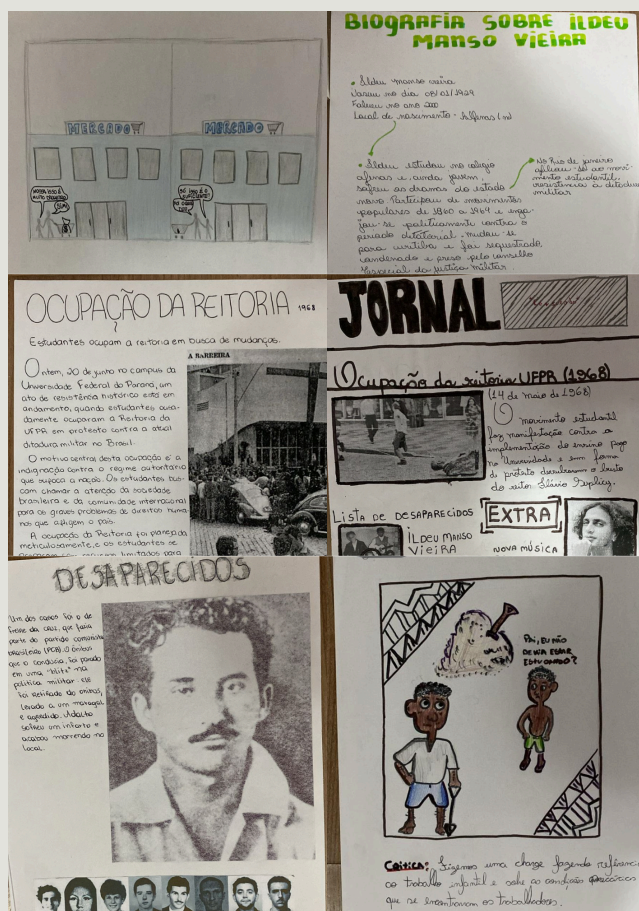 MERCADO
MERCADO
NOSSA ISSO É
MUITO
SIM!
SÓ ISSO É O
SUFICIENTE?
BIOGRAFIA SOBRE ILDEU
MANSO VIEIRA
• Ildeu manso vieira
Nasceu no dia 08/01/1929
Faleceu no ano 200
Local de nascimento - Alfenas
• Ildeu estudou no colégio
alfenas e, ainda jovem,
sofreu as dramas do estado
novo. Participou de movimentos
populares de 1960 a 1964 e enga-
jou-se politicamente contra o
período ditatorial. mudou-se
para curitiba e foi sequestrado,
condenado e preso pelo conselho
Especial da justiça militar.
• No Rio de janeiro
filiou-se ao movi-
mento estudantil,
resistência à ditadura
militar
OCUPAÇÃO DA REITORIA 1968
Estudantes ocupam a reitoria em busca de mudanças.
Ontem, 20 de junho no campus da
Universidade Federal do Paraná, um
ato de resistência histórico está em
andamento, quando estudantes ousa-
damente ocuparam a Reitoria da
UFPR em protesto contra a atual
ditadura militar no Brasil.
O motivo central desta ocupação é a
indignação contra o regime autoritário
que sufoca a nação. Os estudantes bus-
cam chamar a atenção da sociedade
brasileira e da comunidade internacional
para os graves problemas de direitos huma-
nos que afligem o país.
A ocupação da Reitoria foi planejada
meticulosamente, e os estudantes se
recursos limitados para
A BARREIRA
JORNAL
Ocupação da reitoria UFPR (1968)
(14 de maio de 1968)
O movimento estudantil
faz manifestação contra a
implementação do ensino pago
na Universidade e em forma
de protesto derrubaram o busto
do reitor Flávio Suplicy.
LISTA DE DESAPARECIDOS
ILDEU MANSO
VIEIRA
EXTRA
NOVA MÚSICA
DESAPARECIDOS
Um dos casos foi o de
freire da cruz, que fazia
parte do partido comunista
brasileiro (PCB). O ônibus
que o conduzia, foi parado
em uma "blitz" na
política militar. ele
foi retirado do ônibus,
levado a um matagal
e agredido. Adalto
sofreu um infarto e
acabou morrendo no
local.
PAI, EU NÃO
DEVIA ESTAR
ESTUDANDO?
Crítica: Fizemos uma charge fazendo referência
ao trabalho infantil e sobre as condições precárias
que se encontravam os trabalhadores.